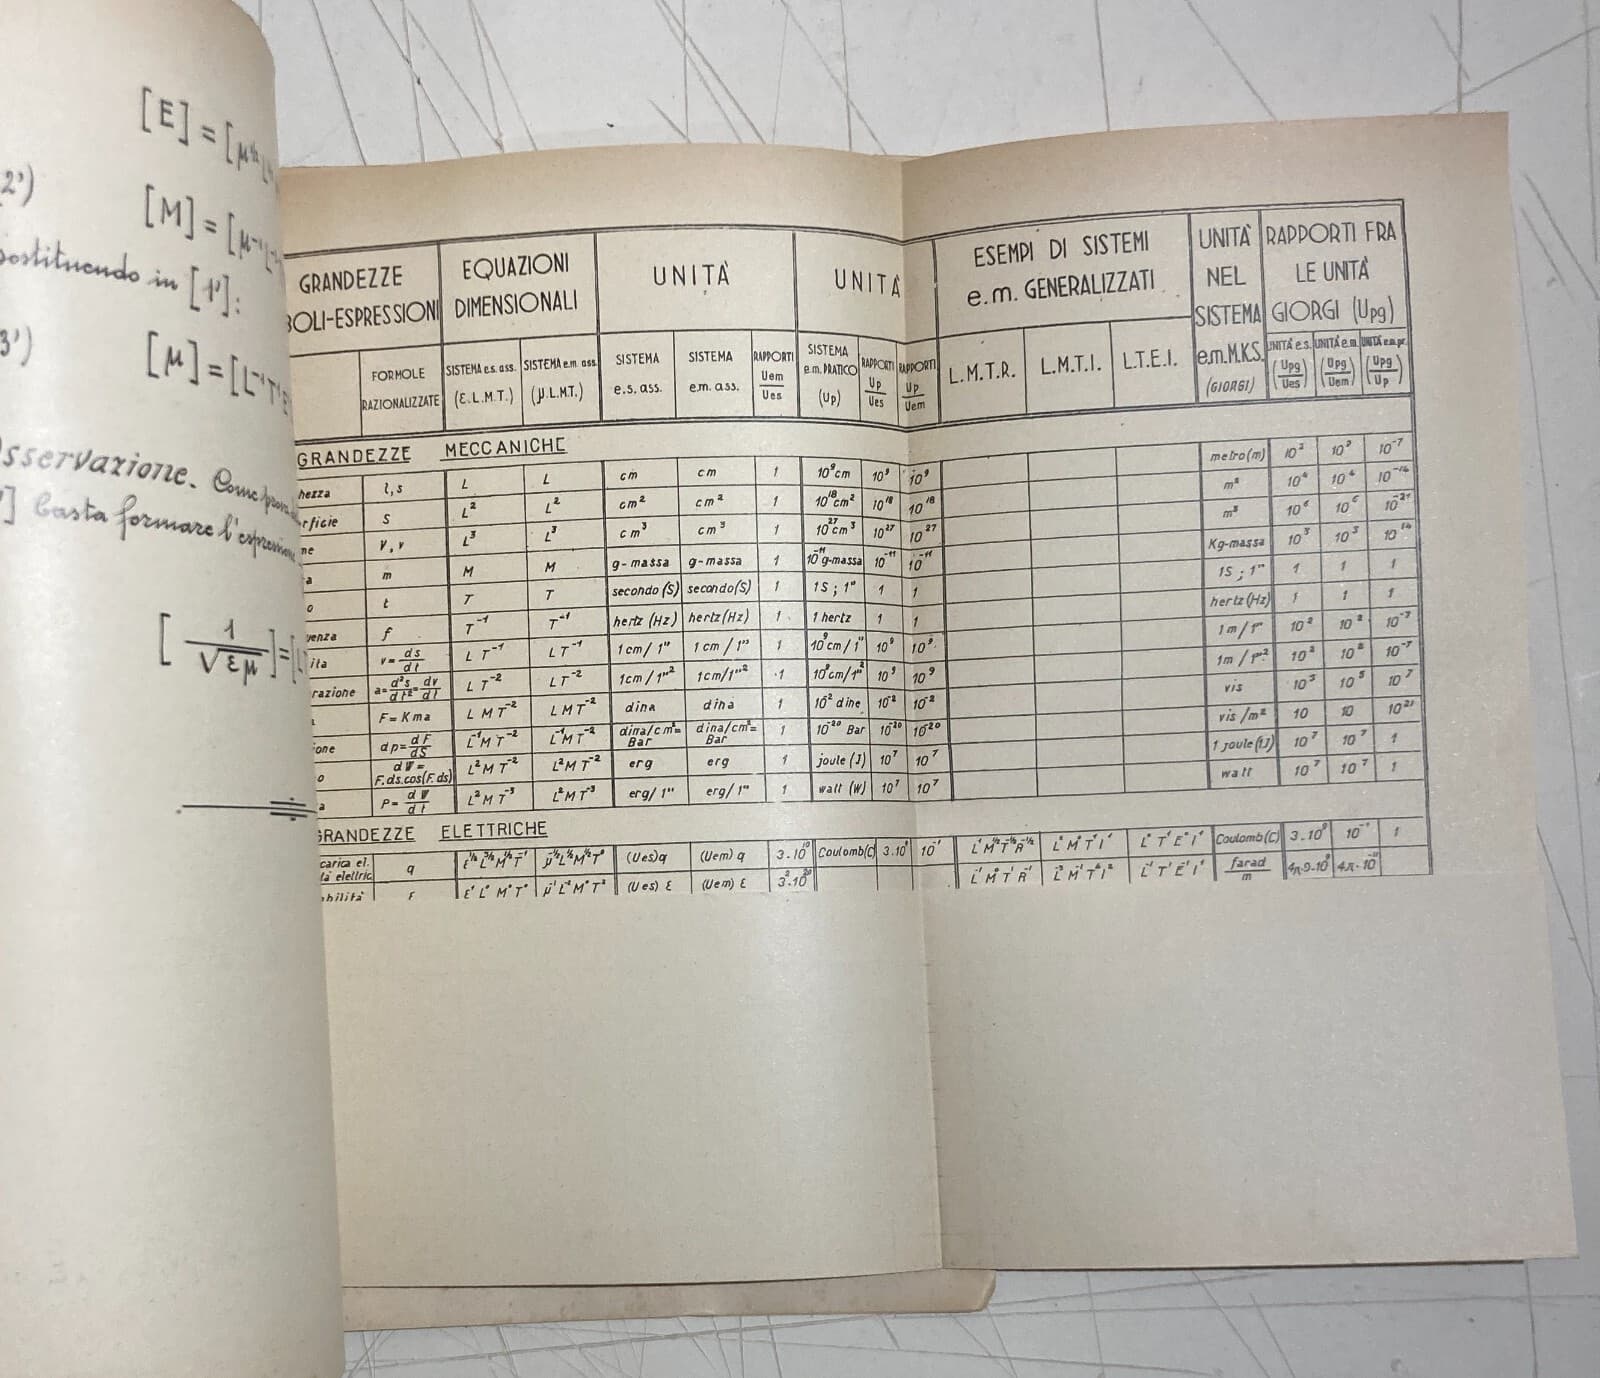 [E] = [μ
2')
[M] = [μ
sostituendo in [1']:
3')
[μ] = [L⁻¹T
sservazione. Come
'] basta formare l'espressione
[1/√εμ] = [
GRANDEZZE
BOLI-ESPRESSIONI
EQUAZIONI DIMENSIONALI
UNITÀ
UNITÀ
ESEMPI DI SISTEMI e.m. GENERALIZZATI
UNITÀ NEL SISTEMA e.m.M.K.S. (GIORGI)
RAPPORTI FRA LE UNITÀ GIORGI (Upg)
FORMOLE RAZIONALIZZATE
SISTEMA e.s. ass. (ε.L.M.T.)
SISTEMA e.m. ass. (μ.L.M.T.)
SISTEMA e.s. ass.
SISTEMA e.m. ass.
RAPPORTI Uem/Ues
SISTEMA e.m. PRATICO (Up)
RAPPORTI Up/Ues
RAPPORTI Up/Uem
L.M.T.R.
L.M.T.I.
L.T.E.I.
UNITÀ e.s. (Upg/Ues)
UNITÀ e.m. (Upg/Uem)
UNITÀ e.m.pr. (Upg/Up)
GRANDEZZE MECCANICHE
hezza l,s L L cm cm 1 10⁹cm 10⁹ 10⁹ metro(m) 10² 10² 10⁻⁷
rficie S L² L² cm² cm² 1 10¹⁸cm² 10¹⁸ 10¹⁸ m² 10⁴ 10⁴ 10⁻¹⁴
me V,v L³ L³ cm³ cm³ 1 10²⁷cm³ 10²⁷ 10²⁷ m³ 10⁶ 10⁶ 10⁻²¹
a m M M g-massa g-massa 1 10⁻¹¹g-massa 10⁻¹¹ 10⁻¹¹ Kg-massa 10³ 10³ 10¹⁴
o t T T secondo(S) secondo(S) 1 1S ; 1" 1 1 1S ; 1" 1 1 1
uenza f T⁻¹ T⁻¹ hertz (Hz) hertz(Hz) 1 1 hertz 1 1 hertz(Hz) 1 1 1
ita v=ds/dt L T⁻¹ L T⁻¹ 1cm/1" 1cm/1" 1 10⁹cm/1" 10⁹ 10⁹ 1m/1" 10² 10² 10⁻⁷
razione a=d²s/dt²=dv/dt L T⁻² L T⁻² 1cm/1"² 1cm/1"² 1 10⁹cm/1"² 10⁹ 10⁹ 1m/1"² 10² 10² 10⁻⁷
F=Kma L M T⁻² L M T⁻² dina dina 1 10⁻² dine 10⁻² 10⁻² vis 10⁵ 10⁵ 10⁷
ione dp=dF/dS L⁻¹M T⁻² L⁻¹M T⁻² dina/cm²= Bar dina/cm²= Bar 1 10⁻²⁰ Bar 10⁻²⁰ 10⁻²⁰ vis/m² 10 10 10²¹
o dW= F.ds.cos(F.ds) L²M T⁻² L²M T⁻² erg erg 1 joule (J) 10⁷ 10⁷ 1 joule(1J) 10⁷ 10⁷ 1
a P=dW/dt L²M T⁻³ L²M T⁻³ erg/1" erg/1" 1 watt (W) 10⁷ 10⁷ watt 10⁷ 10⁷ 1
GRANDEZZE ELETTRICHE
carica el. q (Ues)q (Uem)q 3.10¹⁰ Coulomb(C) 3.10⁹ 10⁻¹ L°M°T¹I¹ L°T¹E°I¹ Coulomb(C) 3.10⁹ 10⁻¹ 1
tà elettric.
ε¹L°M°T° μ⁻¹L⁻²M°T² (Ues)ε (Uem)ε farad/m 4π.9.10⁹ 4π.10⁻¹¹